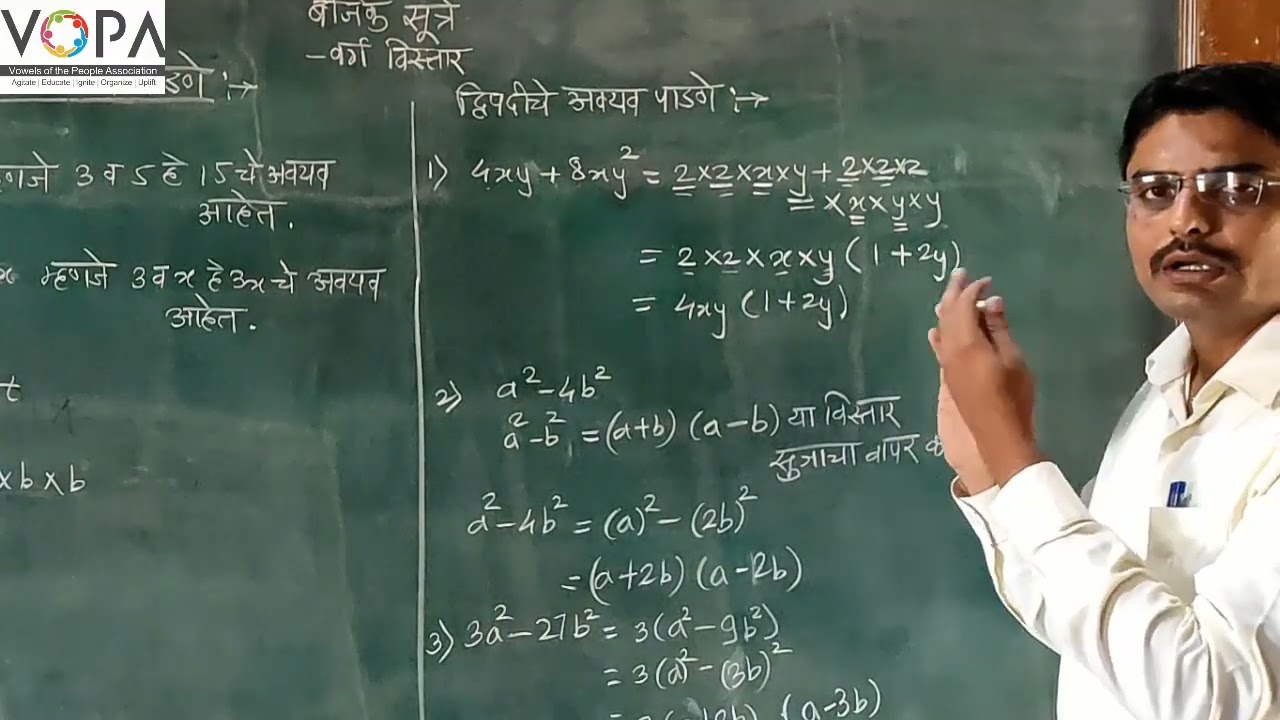 VOPA
Vowels of the People Association
Agitate | Educate | Ignite | Organize | Uplift
सूत्रे
-वर्ग विस्तार
3 व 5 हे 15 चे अवयव
आहेत.
x म्हणजे 3 व x हे 3x चे अवयव
आहेत.
t
x b x b
द्विपदीचे अवयव पाडणे :→
1) 4xy + 8xy² = 2×2×x×y + 2×2×2
×x×y×y
= 2×2×x×y (1+2y)
= 4xy (1+2y)
2) a²-4b²
a²-b² = (a+b) (a-b) या विस्तार
सुत्राचा वापर
a²-4b² = (a)² - (2b)²
= (a+2b) (a-2b)
3) 3a²-27b² = 3(a²-9b²)
= 3(a)²-(3b)²
(a-3b)